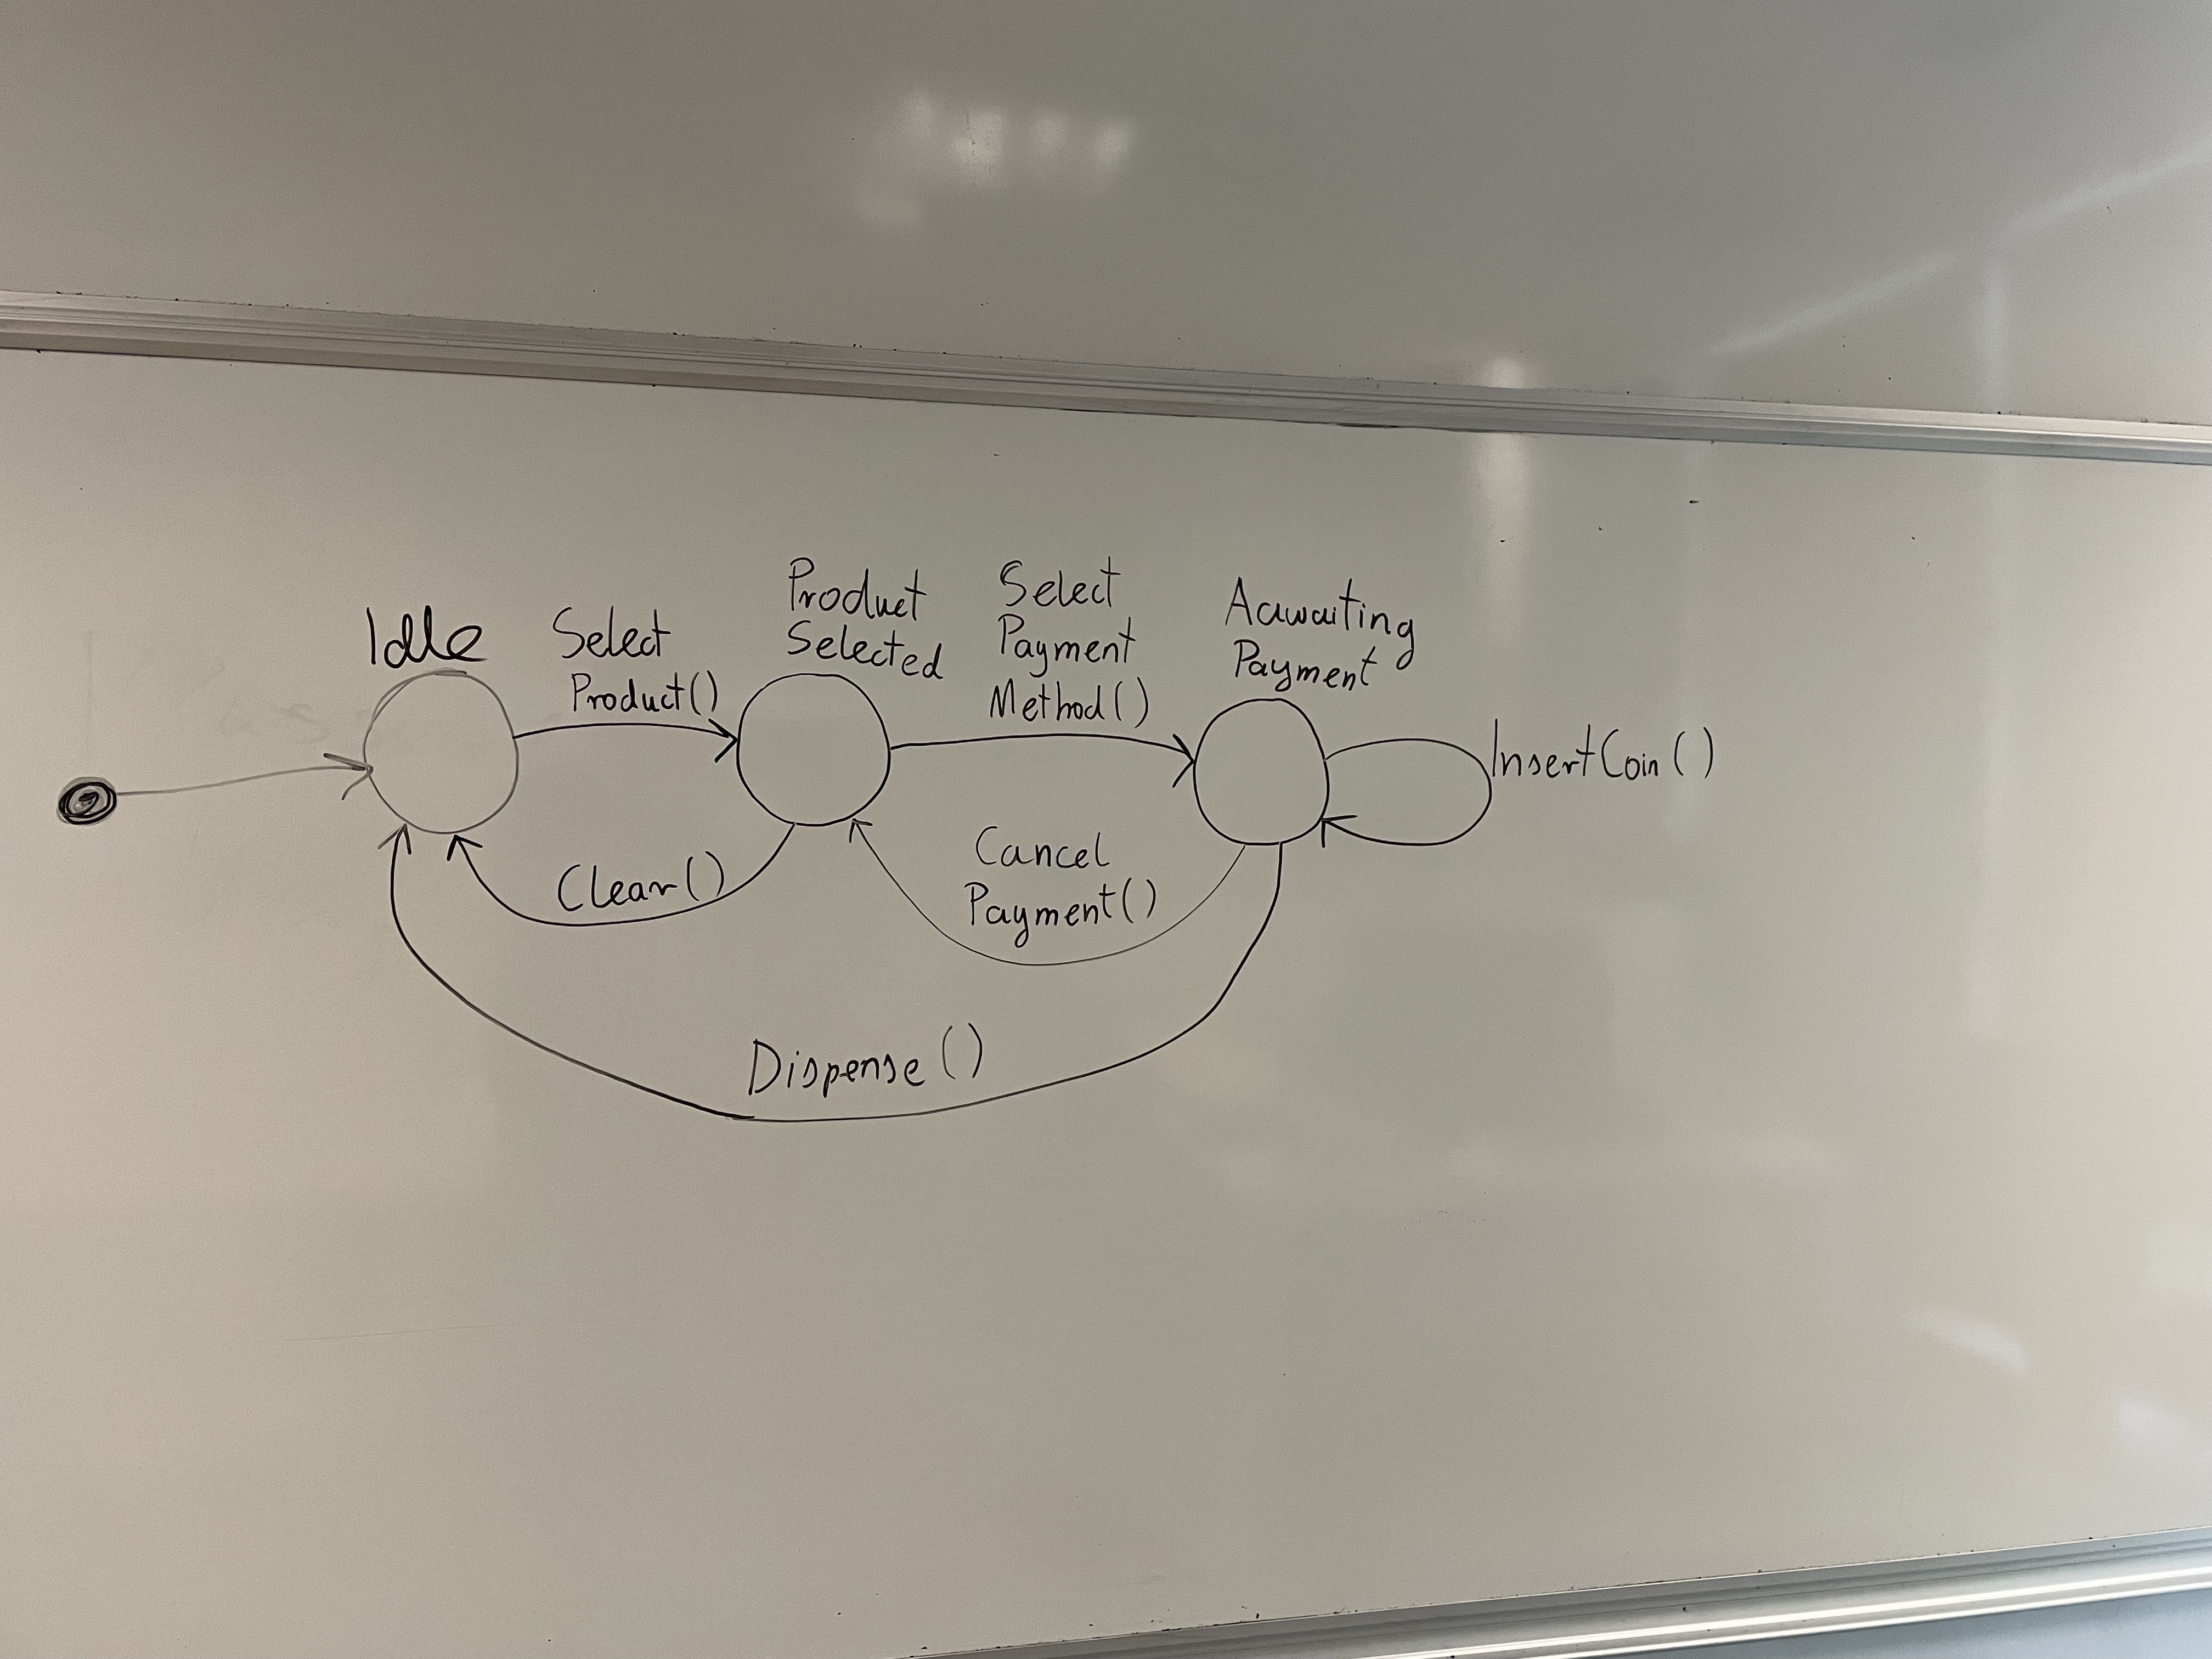 Idle
Select
Product()
Product
Selected
Select
Payment
Method()
Aawaiting
Payment
InsertCoin()
Clear()
Cancel
Payment()
Dispense()